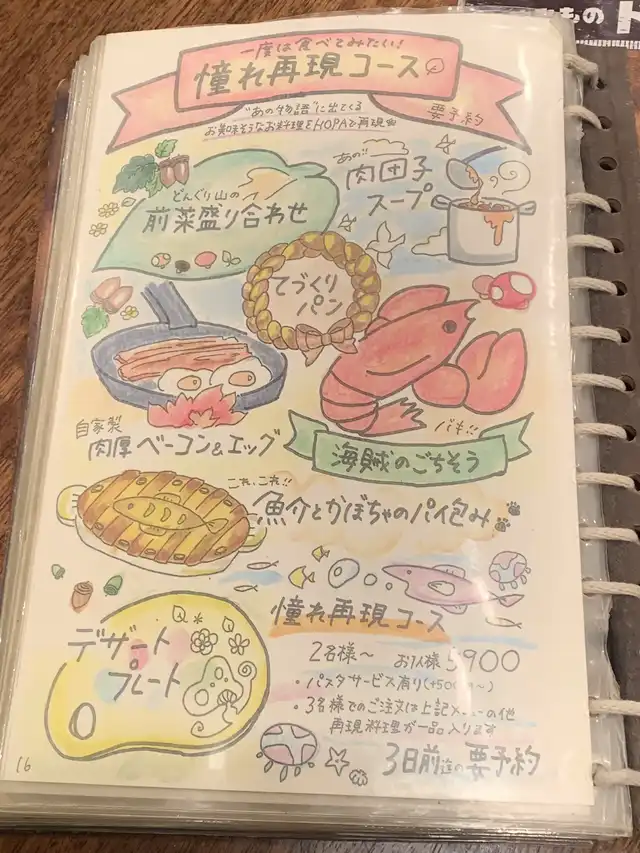 一度は食べてみたい!
憧れ再現コース
"あの物語"に出てくる
お美味そうなお料理をHOPAで再現
要予約
どんぐり山の
前菜盛り合わせ
あの!!
肉団子
スープ
てづくり
パン
自家製
肉厚ベーコン&エッグ
バキ!!
海賊のごちそう
これ、これ!!
魚介とかぼちゃのパイ包み
デザート
プレート
憧れ再現コース
2名様〜 お1人様 5900
・パスタサービス有り(+500円〜)
・3名様でのご注文は上記メニューの他
再現料理が一品入ります
3日前迄の要予約
16
もの